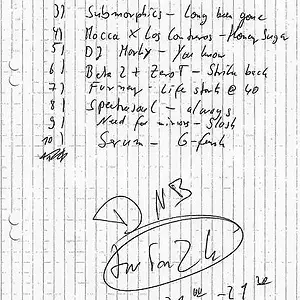 3) Submorphics – Long been gone
4) Mocca X Los Londoros – Honey Suga
5) DJ Marky – You know
6) Beta 2 + Zero T – Strike back
7) Furney – Life starts @ 40
8) Spectrasoul – always
9) Need for mirrors – Slosh
10) Serum – G-funk
D N B